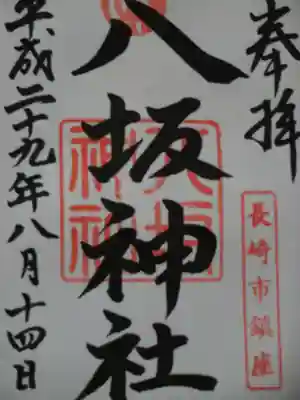 奉拝
長崎市鎮座
八坂神社
八坂神社
平成二十九年八月十四日